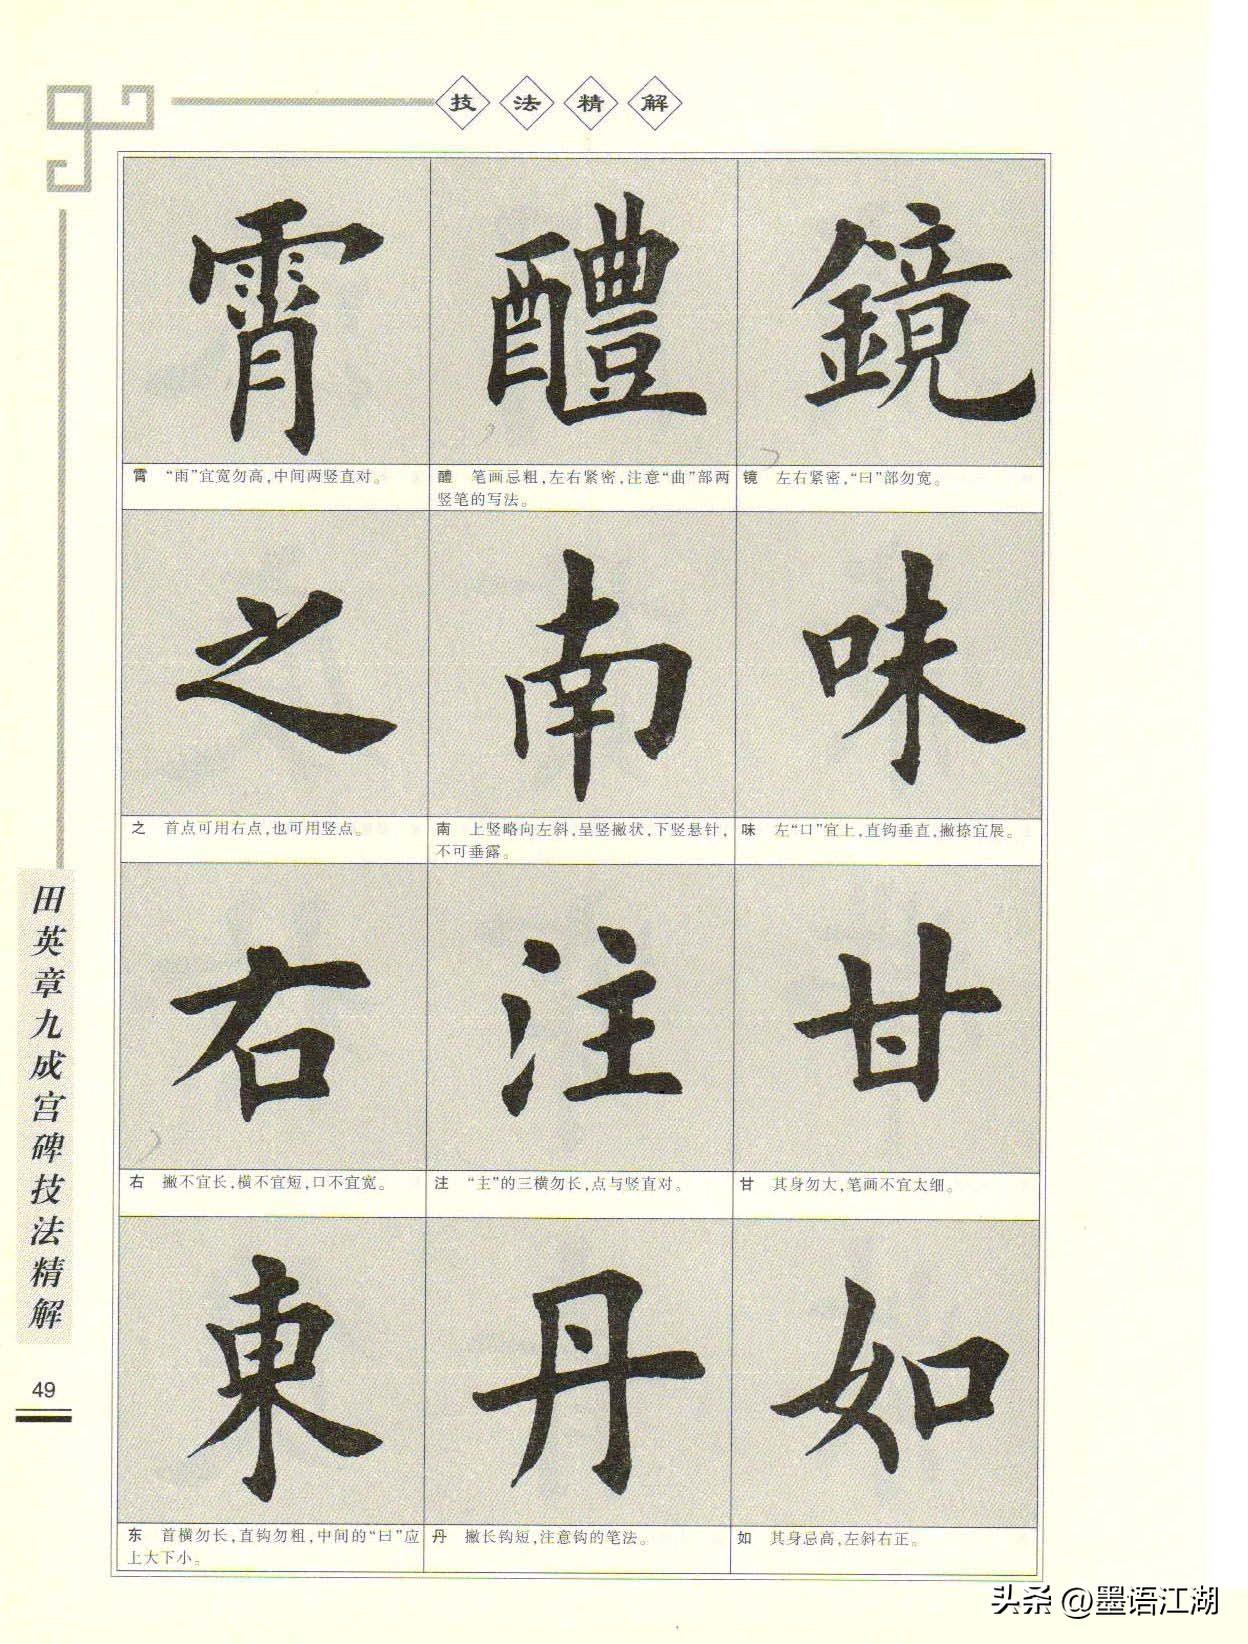 技法精解
霄
醴
鏡
霄 “雨”宜宽勿高,中间两竖直对。
醴 笔画忌粗,左右紧密,注意“曲”部两
竖笔的写法。
镜 左右紧密,“曰”部勿宽。
之
南
味
之 首点可用右点,也可用竖点。
南 上竖略向左斜,呈竖撇状,下竖悬针,
不可垂露。
味 左“口”宜上,直钩垂直,撇捺宜展。
右
注
甘
右 撇不宜长,横不宜短,口不宜宽。
注 “主”的三横勿长,点与竖直对。
甘 其身勿大,笔画不宜太细。
東
丹
如
东 首横勿长,直钩勿粗,中间的“曰”应
上大下小。
丹 撇长钩短,注意钩的笔法。
如 其身忌高,左斜右正。
田英章九成宫碑技法精解
49
头条 @墨语江湖